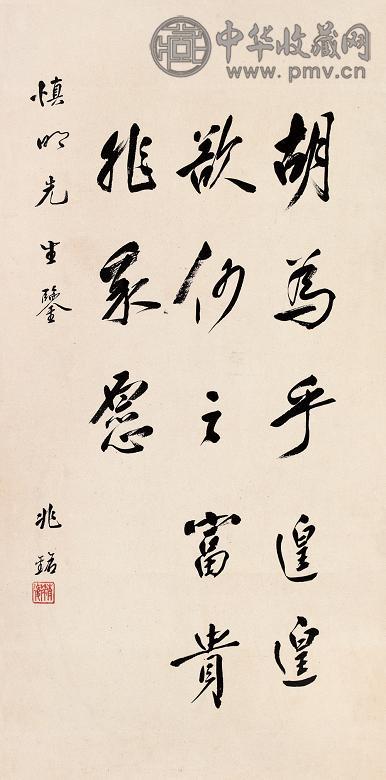 中华收藏网
www.pmv.cn
胡為乎遑遑
欲何之富貴
非我愿
慎明先生鑒
兆銘